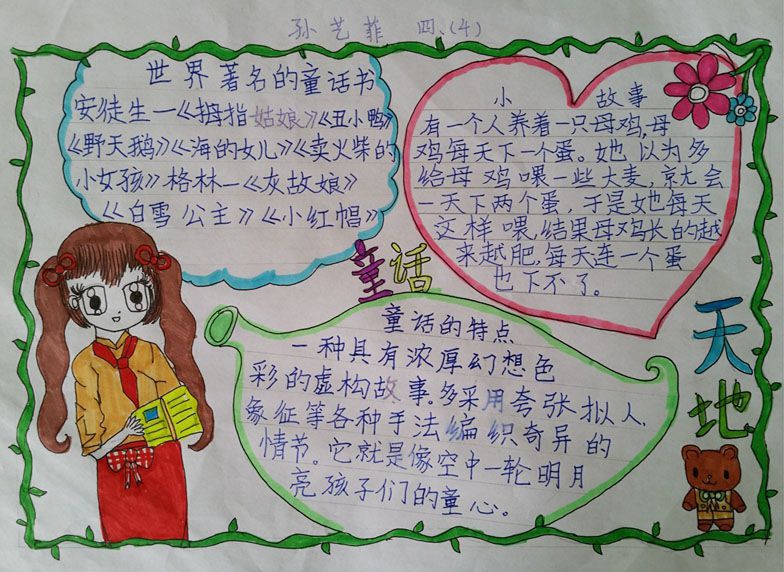 孙艺菲 四、(4)
世界著名的童话书
安徒生—《拇指姑娘》《丑小鸭》
《野天鹅》《海的女儿》《卖火柴的
小女孩》格林—《灰故娘》
《白雪公主》《小红帽》
小 故事
有一个人养着一只母鸡,母
鸡每天下一个蛋。她以为多
给母鸡喂一些大麦,就会
一天下两个蛋,于是她每天
这样喂,结果母鸡长的越
来越肥,每天连一个蛋
也下不了。
童话
天地
童话的特点
一种具有浓厚幻想色
彩的虚构故事。多采用夸张拟人.
象征等各种手法编织奇异的
情节。它就是像空中一轮明月
亮孩子们的童心。